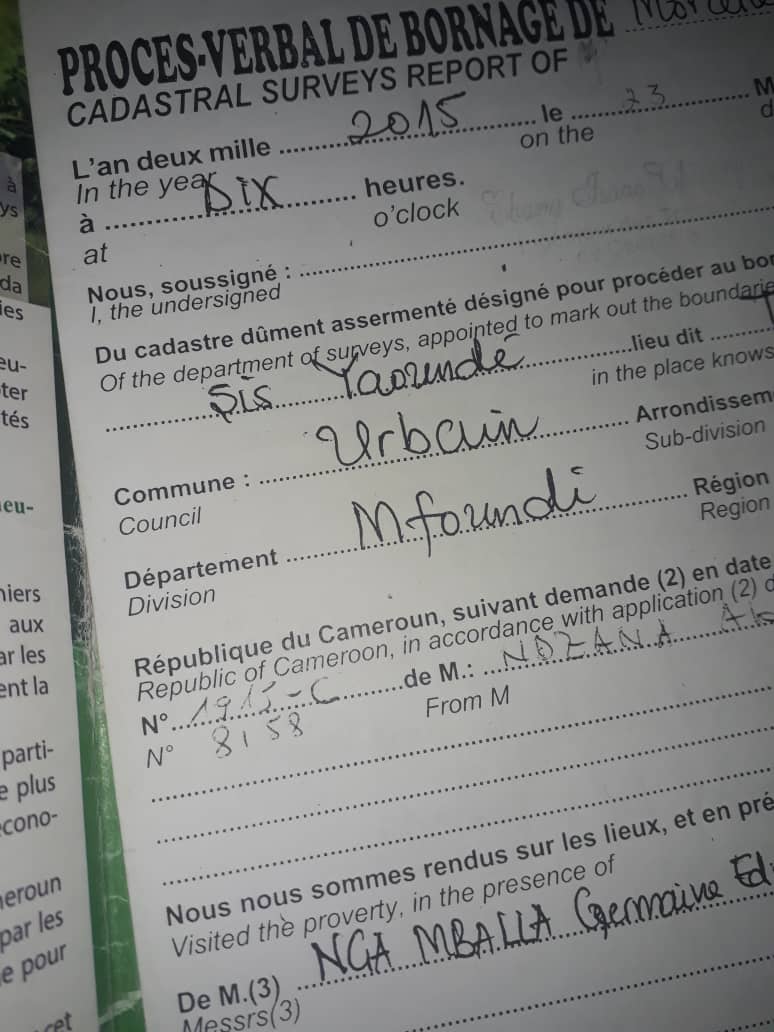 PROCES-VERBAL DE BORNAGE DE
CADASTRAL SURVEYS REPORT OF
L'an deux mille 2015 le 23
In the year on the
à Dix heures.
at o'clock
Nous, soussigné :
I, the undersigned
Du cadastre dûment assermenté désigné pour procéder au bor
Of the department of surveys, appointed to mark out the boundarie
Sis Yaoundé lieu dit
in the place knows
Commune : Urbain Arrondissem
Council Sub-division
Département Mfoundi Région
Division Region
République du Cameroun, suivant demande (2) en date
Republic of Cameroon, in accordance with application (2) d
N° 1915-C de M.: NDZANA
N° 8158 From M
Nous nous sommes rendus sur les lieux, et en pré
Visited the proverty, in the presence of
De M.(3) NGA MBALLA Germaine Edi
Messrs(3)
à
ys
re
da
ies
eu-
ter
tés
eu-
niers
aux
ar les
ent la
parti-
e plus
écono-
neroun
par les
e pour
cet